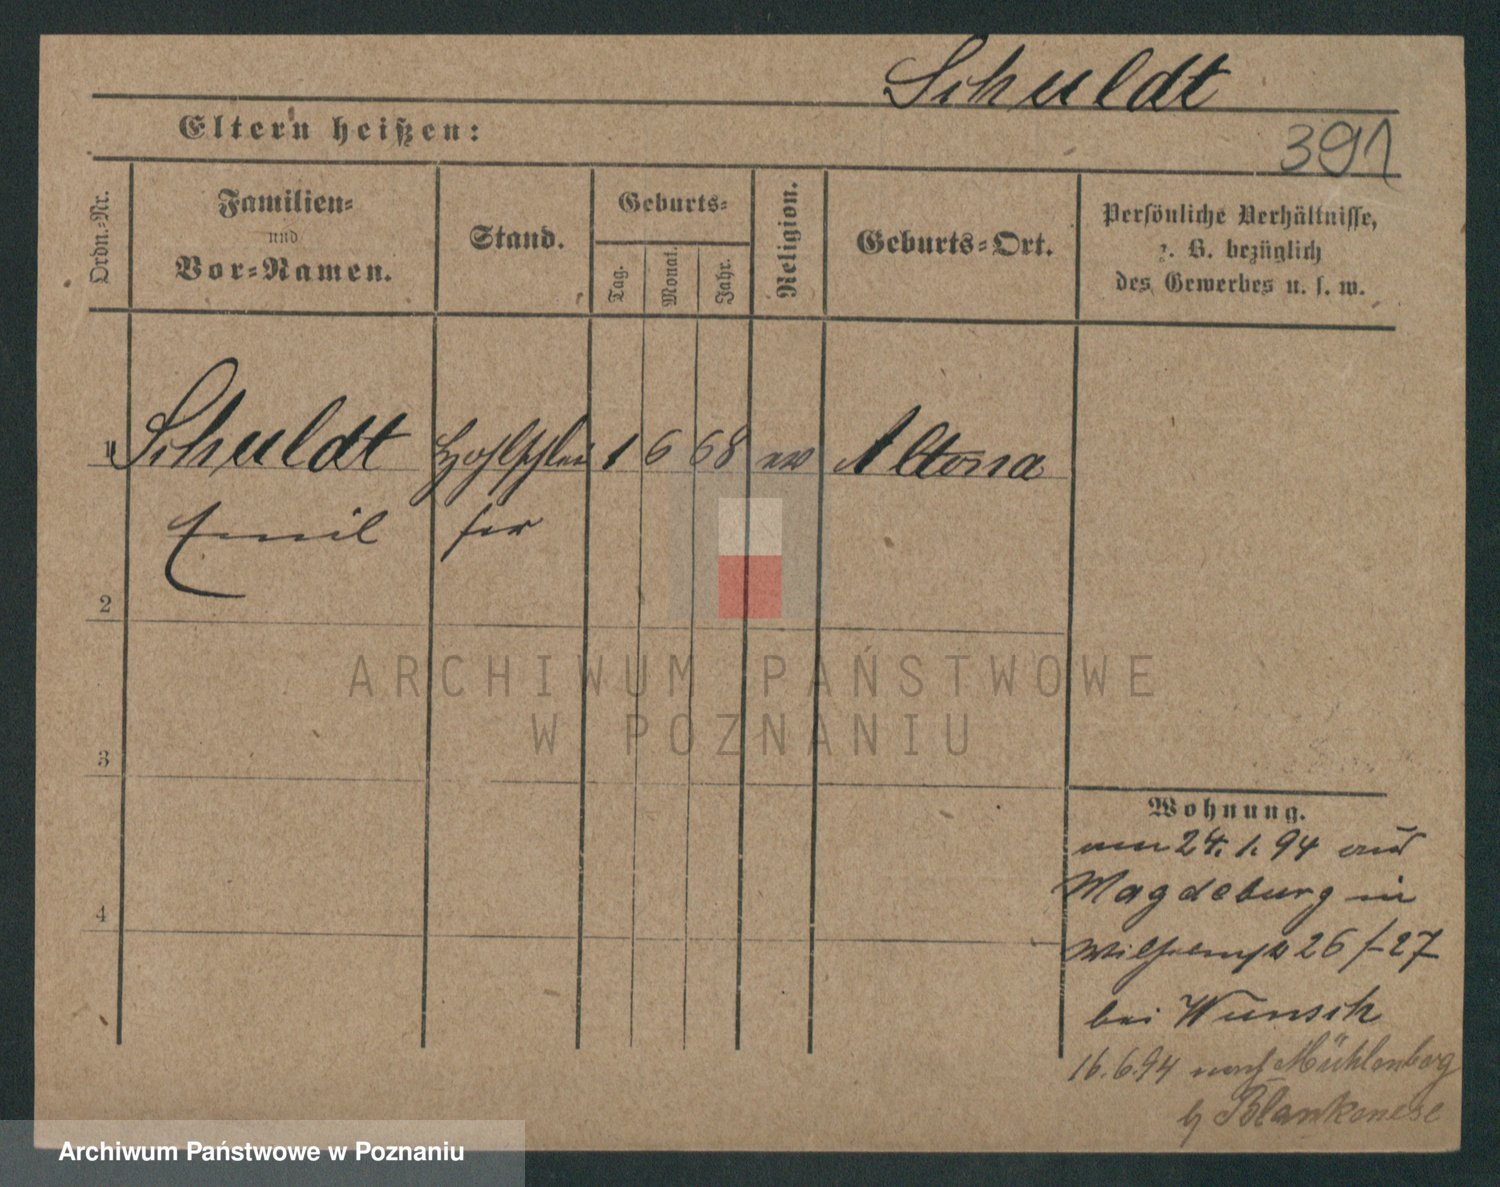 Schuldt
391
Eltern heißen:
Ordn.-Nr.
Familien-
und
Vor-Namen.
Stand.
Geburts-
Tag.
Monat.
Jahr.
Religion.
Geburts-Ort.
Persönliche Verhältnisse,
z. B. bezüglich
des Gewerbes u. s. w.
1 Schuldt Hohlschlei 1 6 68 ev Altona
Emil fer
2
ARCHIWUM PAŃSTWOWE
W POZNANIU
3
Wohnung.
24. 1. 94 aus
Magdeburg in
26/27
4
bei Wunsch
16.6.94 nach Mühlenberg
b Blankenese
Archiwum Państwowe w Poznaniu